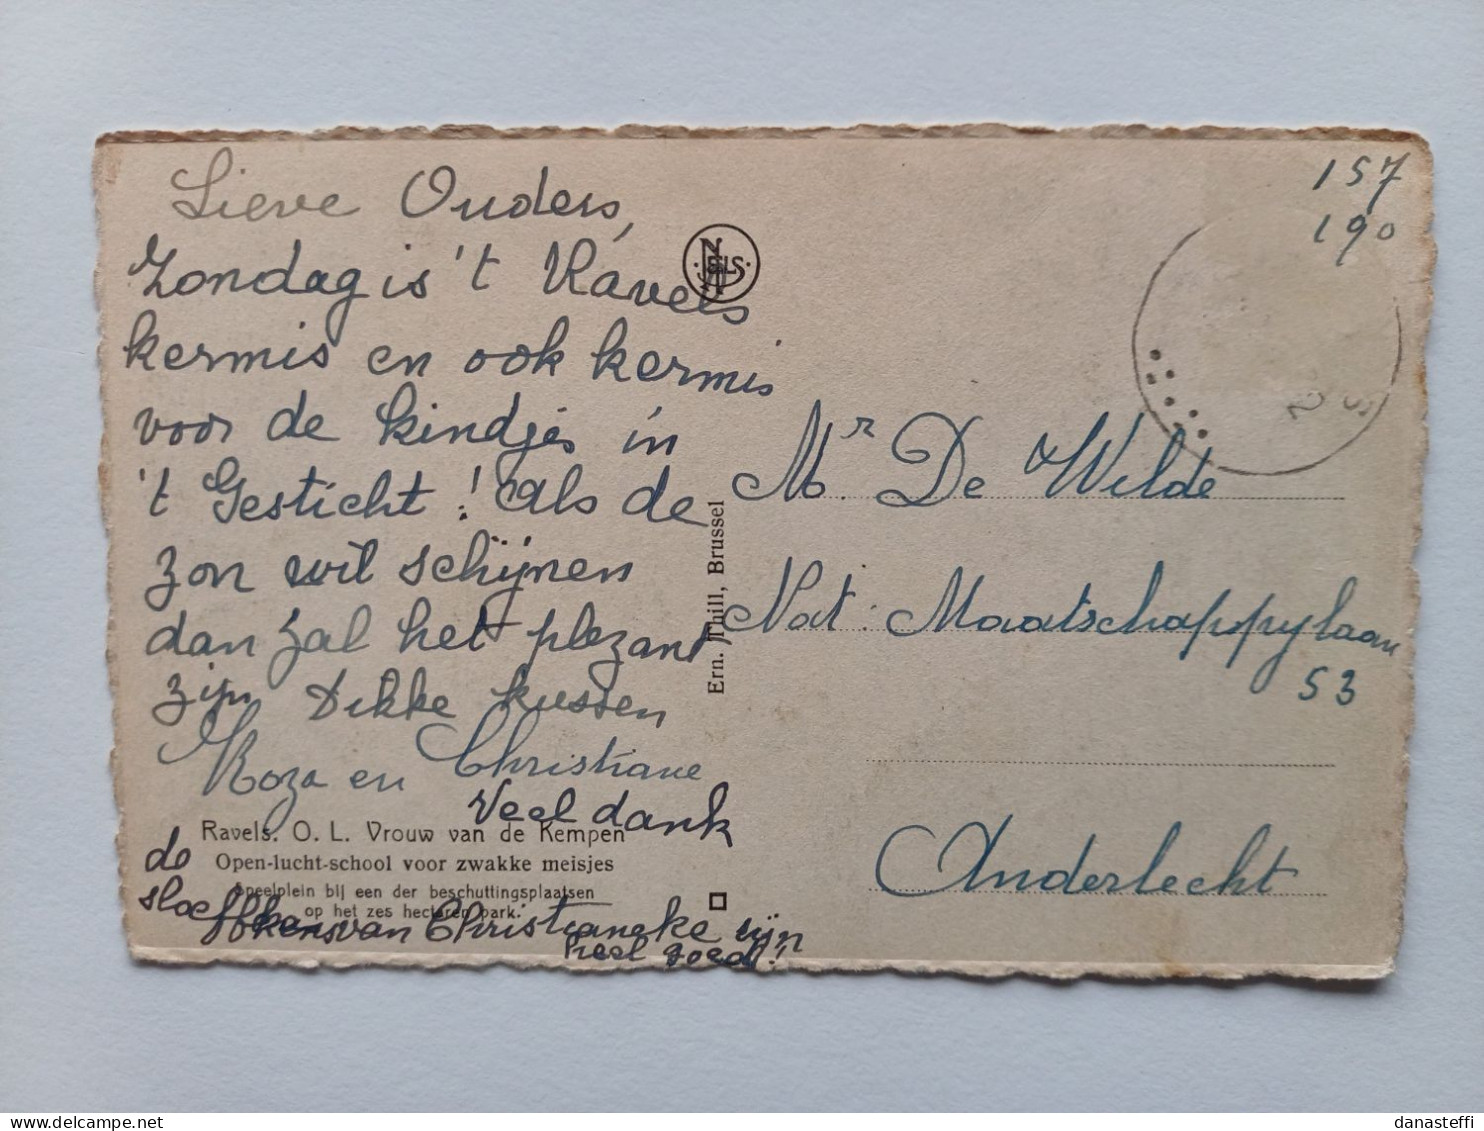 Lieve Ouders,
Zondag is 't Ravels
kermis en ook kermis
voor de kindjes in
't Gesticht! Als de
zon wil schijnen
dan zal het plezant
zijn Dikke kussen
Roza en Christiane
Veel dank
de
sloeffkens van Christianeke zijn
heel goed!
Ravels. O. L. Vrouw van de Kempen
Open-lucht-school voor zwakke meisjes
Speelplein bij een der beschuttingsplaatsen
op het zes hectaren park.
NELS
Ern. Thill, Brussel
157
190
Mr. De Wilde
Nat: Maatschappijlaan
53
Anderlecht
delcampe.net
danasteffi